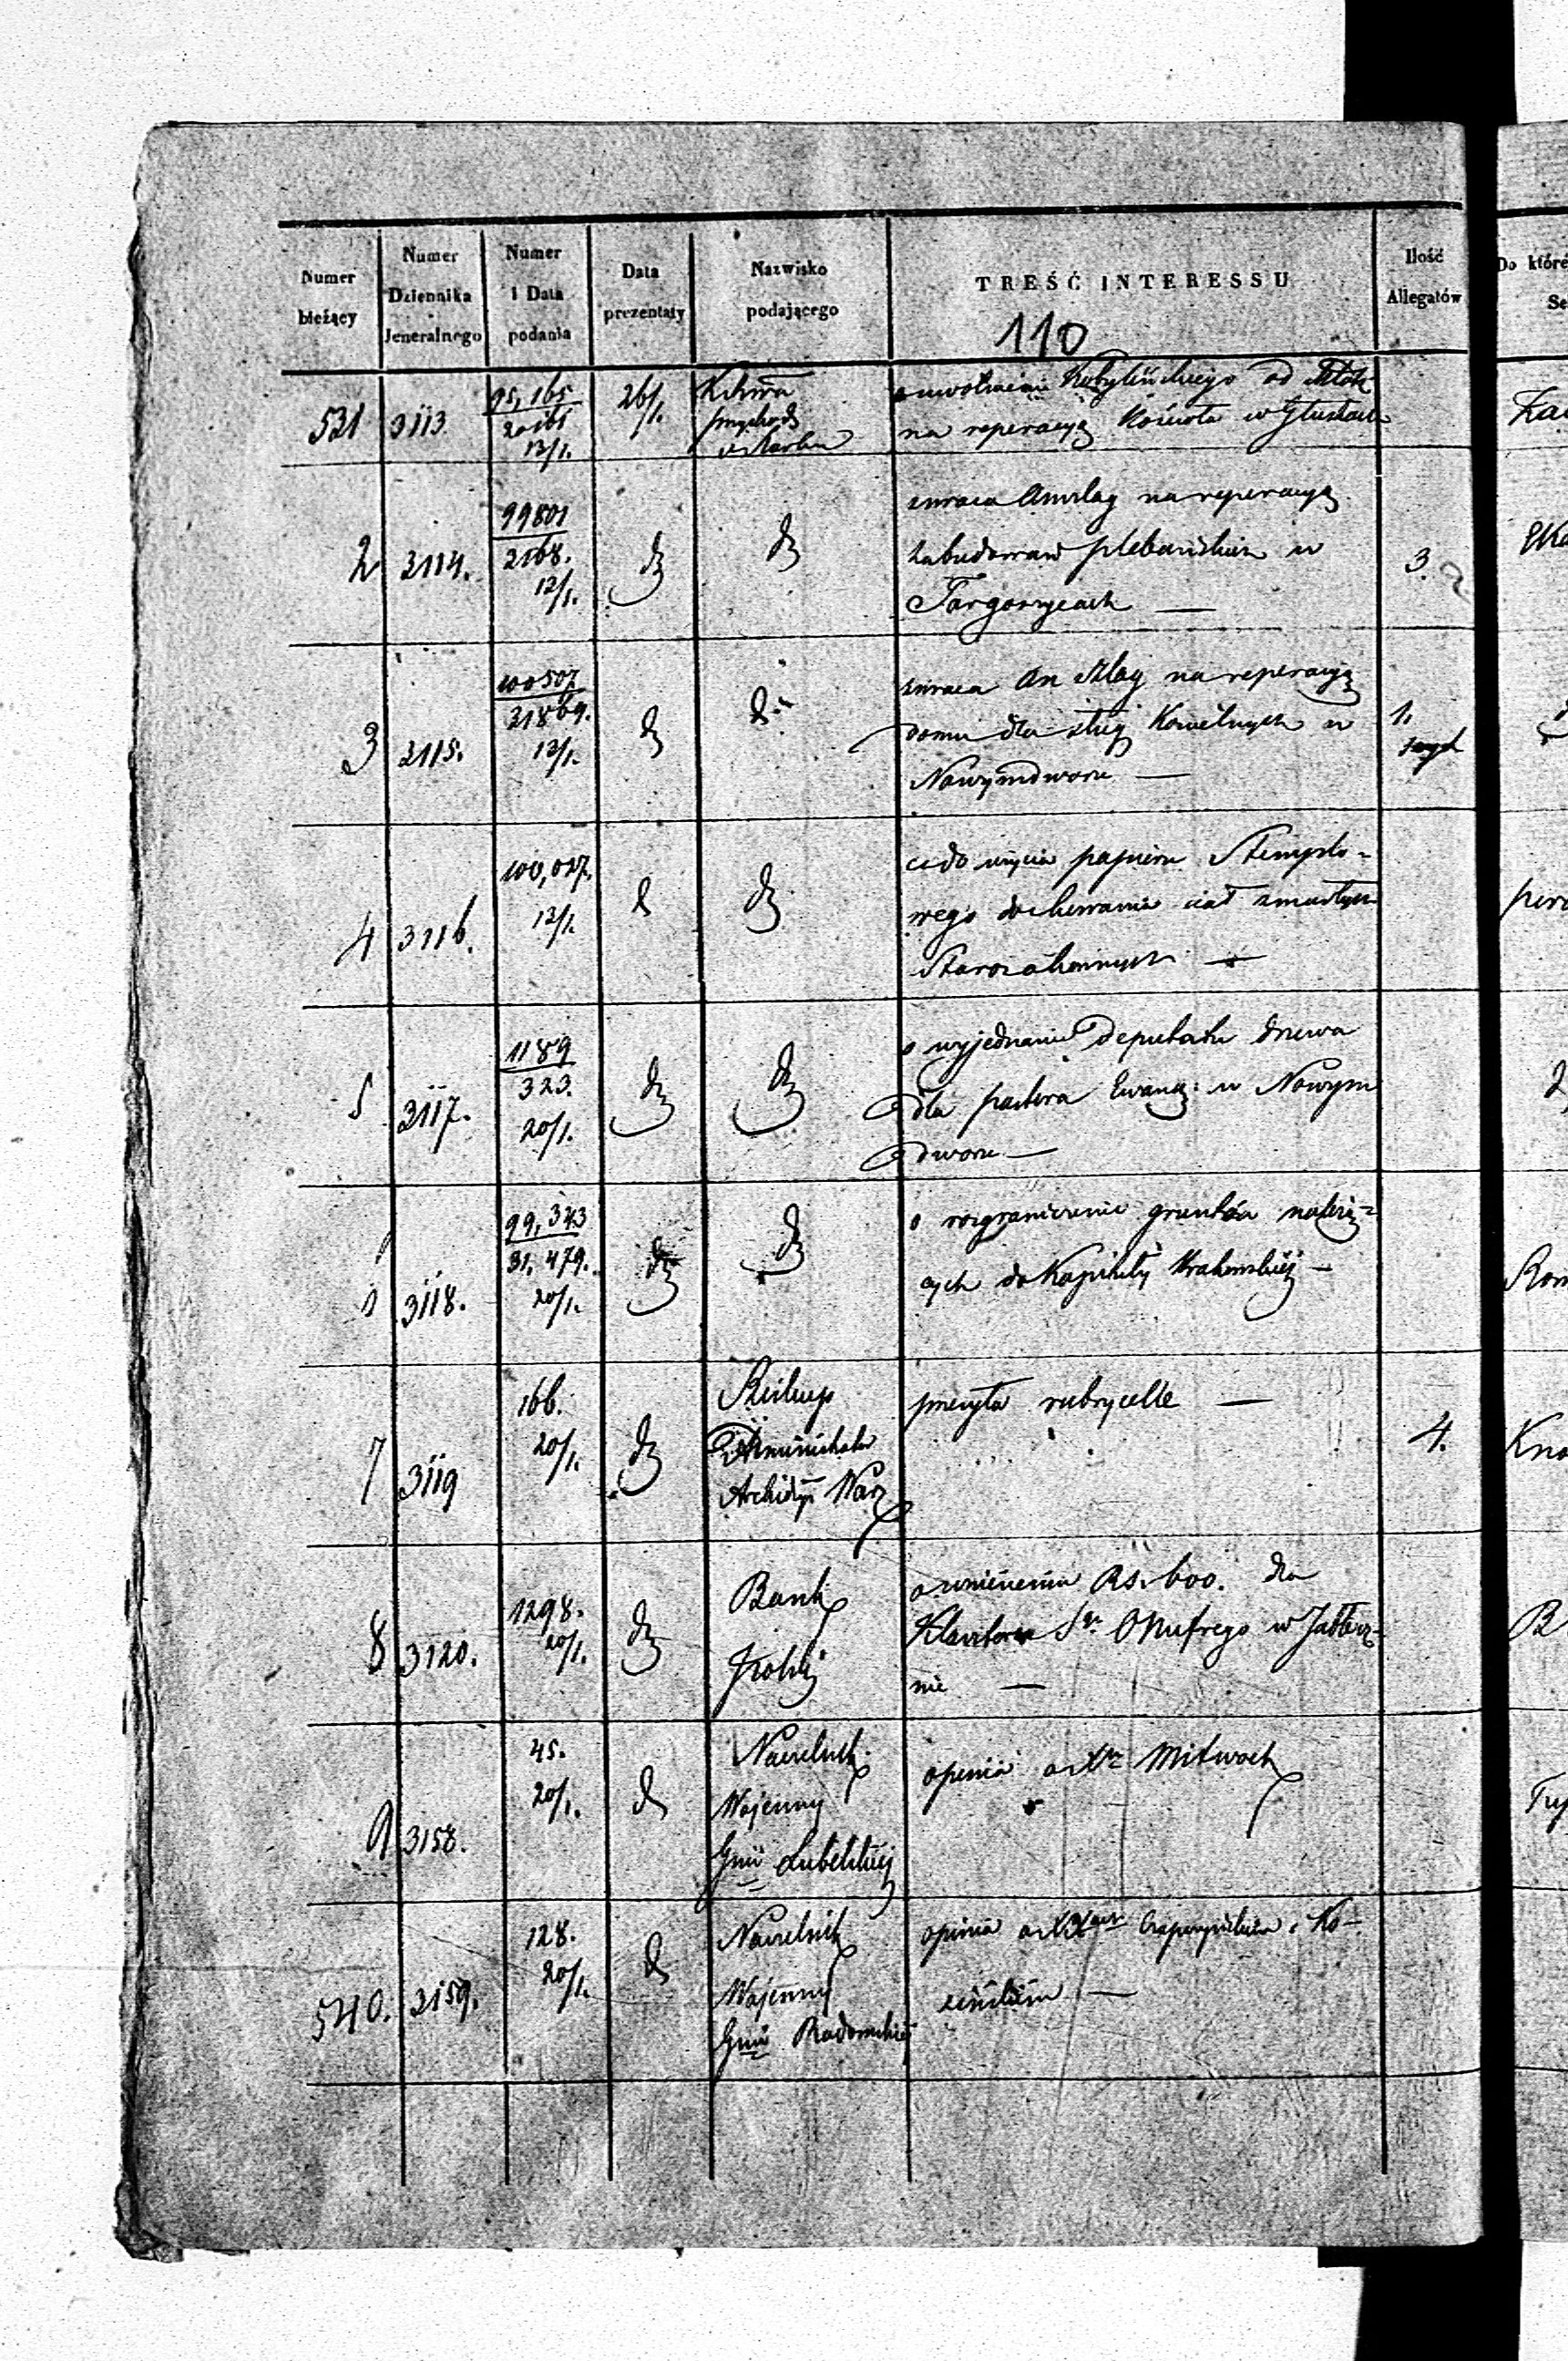 Numer bieżący
Numer Dziennika Jeneralnego
Numer i Data podania
Data prezentaty
Nazwisko podającego
TREŚĆ INTERESSU
Ilość Allegatów
110
531 3113 95,165 13/1. 26/1.
o uwolnienie Kobylińskiego od
na reperacyą Kościoła w
2 3114. 99801 2168. 13/1. 3.
zwraca Anszlag na reperacyą
zabudowań plebańskich w
Targoszycach —
3 3115. 100507 31869. 13/1. 1.
zwraca Anszlag na reperacyą
domu dla sług Kościelnych w
Nowymdworze —
4 3116. 100,027. 13/1.
co do użycia papieru Stemplo-
wego do chowania ciał zmarłych
Starozakonnych —
5 3117. 1189 323. 20/1.
o wyjednanie Deputatu drzewa
dla pastora Ewang: w Nowym
dworze —
3118. 99,343 31,479. 20/1.
o rozgraniczenie gruntów należą=
cych do Kapituły Krakowskiej —
7 3119 166. 20/1. 4.
Biskup
Administrator
Archidy Warz
przesyła rubrycelle —
8 3120. 1298. 20/1.
Bank
Polski
o rs. 600. dla
Klasztoru Sgo Onufrego w Jabłecz-
nie —
9 3158. 45. 20/1.
Naczelnik
Wojenny
Gnii Lubelskiej
opinia o Xdzu Mitwoch
540. 3159. 128. 20/1.
Naczelnik
Wojenny
Gnii Radomskiej
opinia o i Ko-